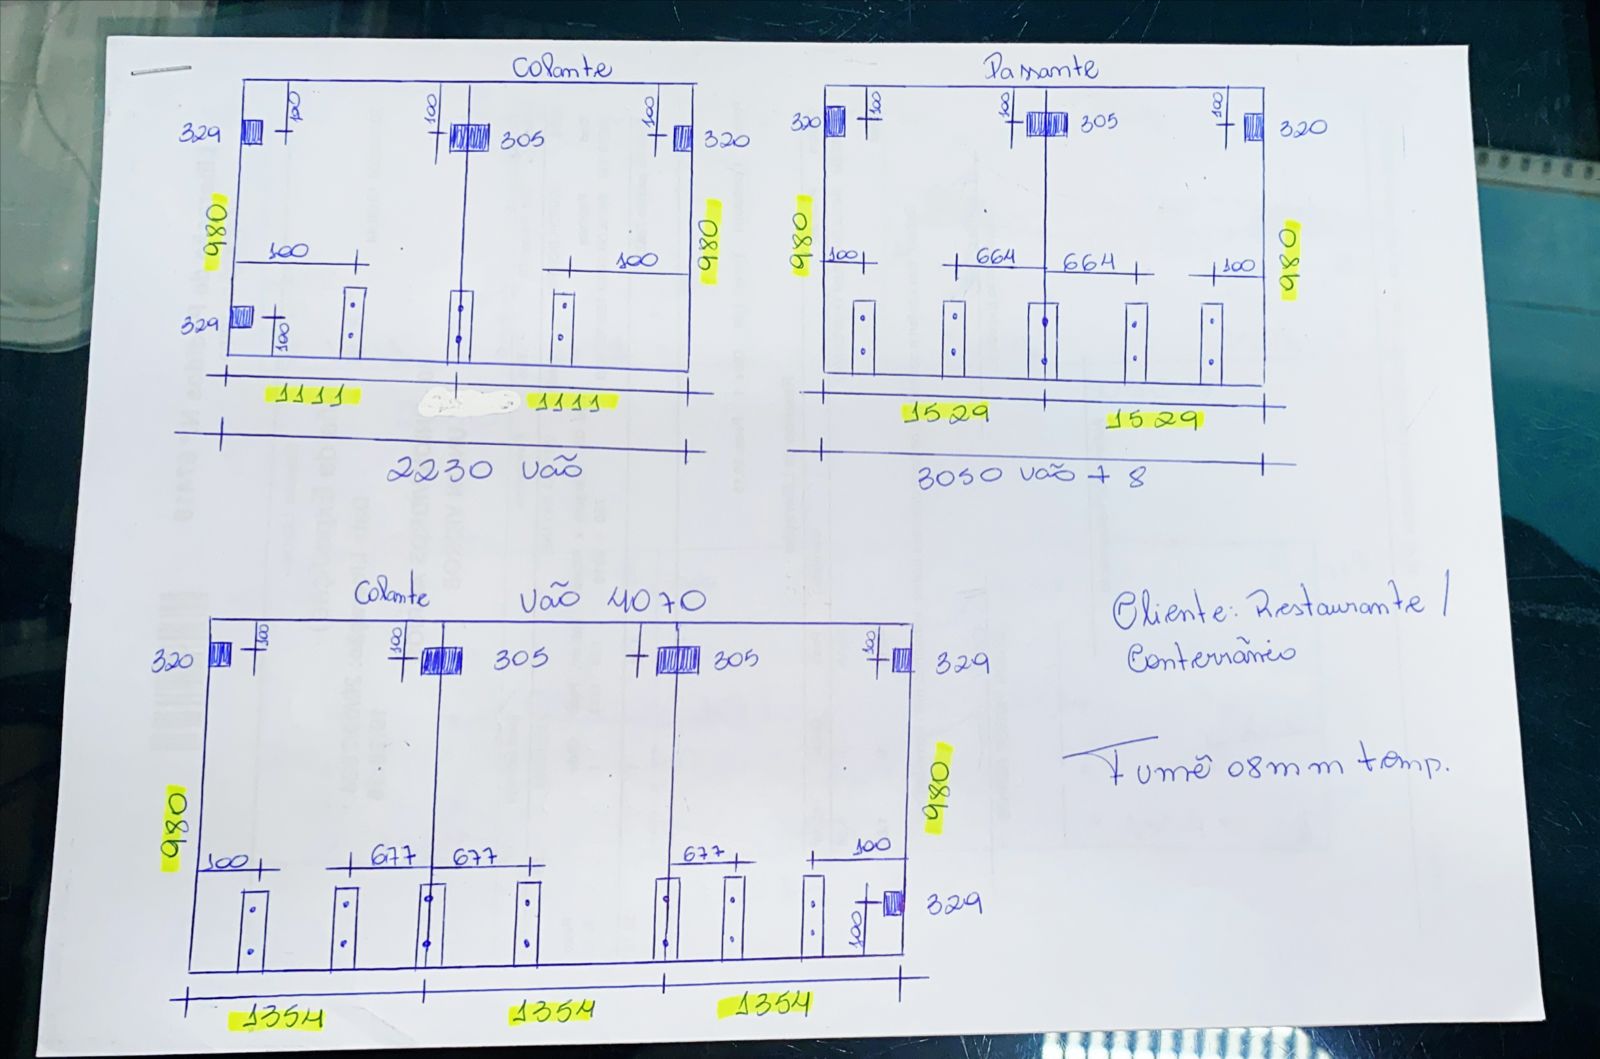 Colante
100
100
100
329
305
320
980
980
100
100
329
100
1111
1111
2230 vão
Passante
100
100
100
320
305
320
980
980
100
664
664
100
1529
1529
3050 vão + 8
Colante
vão 4070
100
100
100
320
305
305
329
980
980
100
677
677
677
100
329
100
1354
1354
1354
Cliente: Restaurante /
Conterrâneo
Fumê 08mm temp.